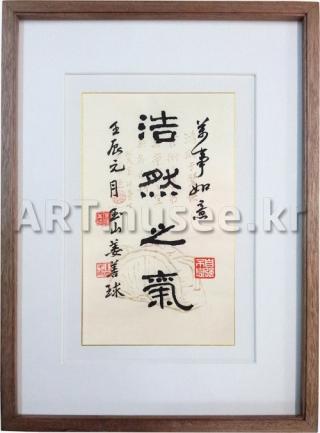 萬事如意
浩然之氣
壬辰元月 玉山 姜善球
ART.musee.kr